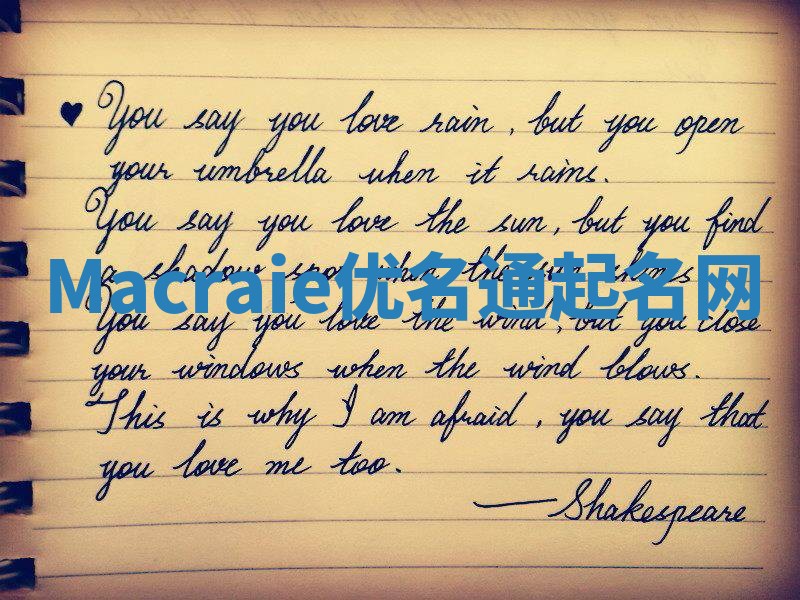 ♥ You say you love rain, but you open
your umbrella when it rains.
You say you love the sun, but you find
a shadow spot when the sun shines
Macraie优名通起名网
You say you love the wind, but you close
your windows when the wind blows.
This is why I am afraid, you say that
you love me too.
—Shakespeare